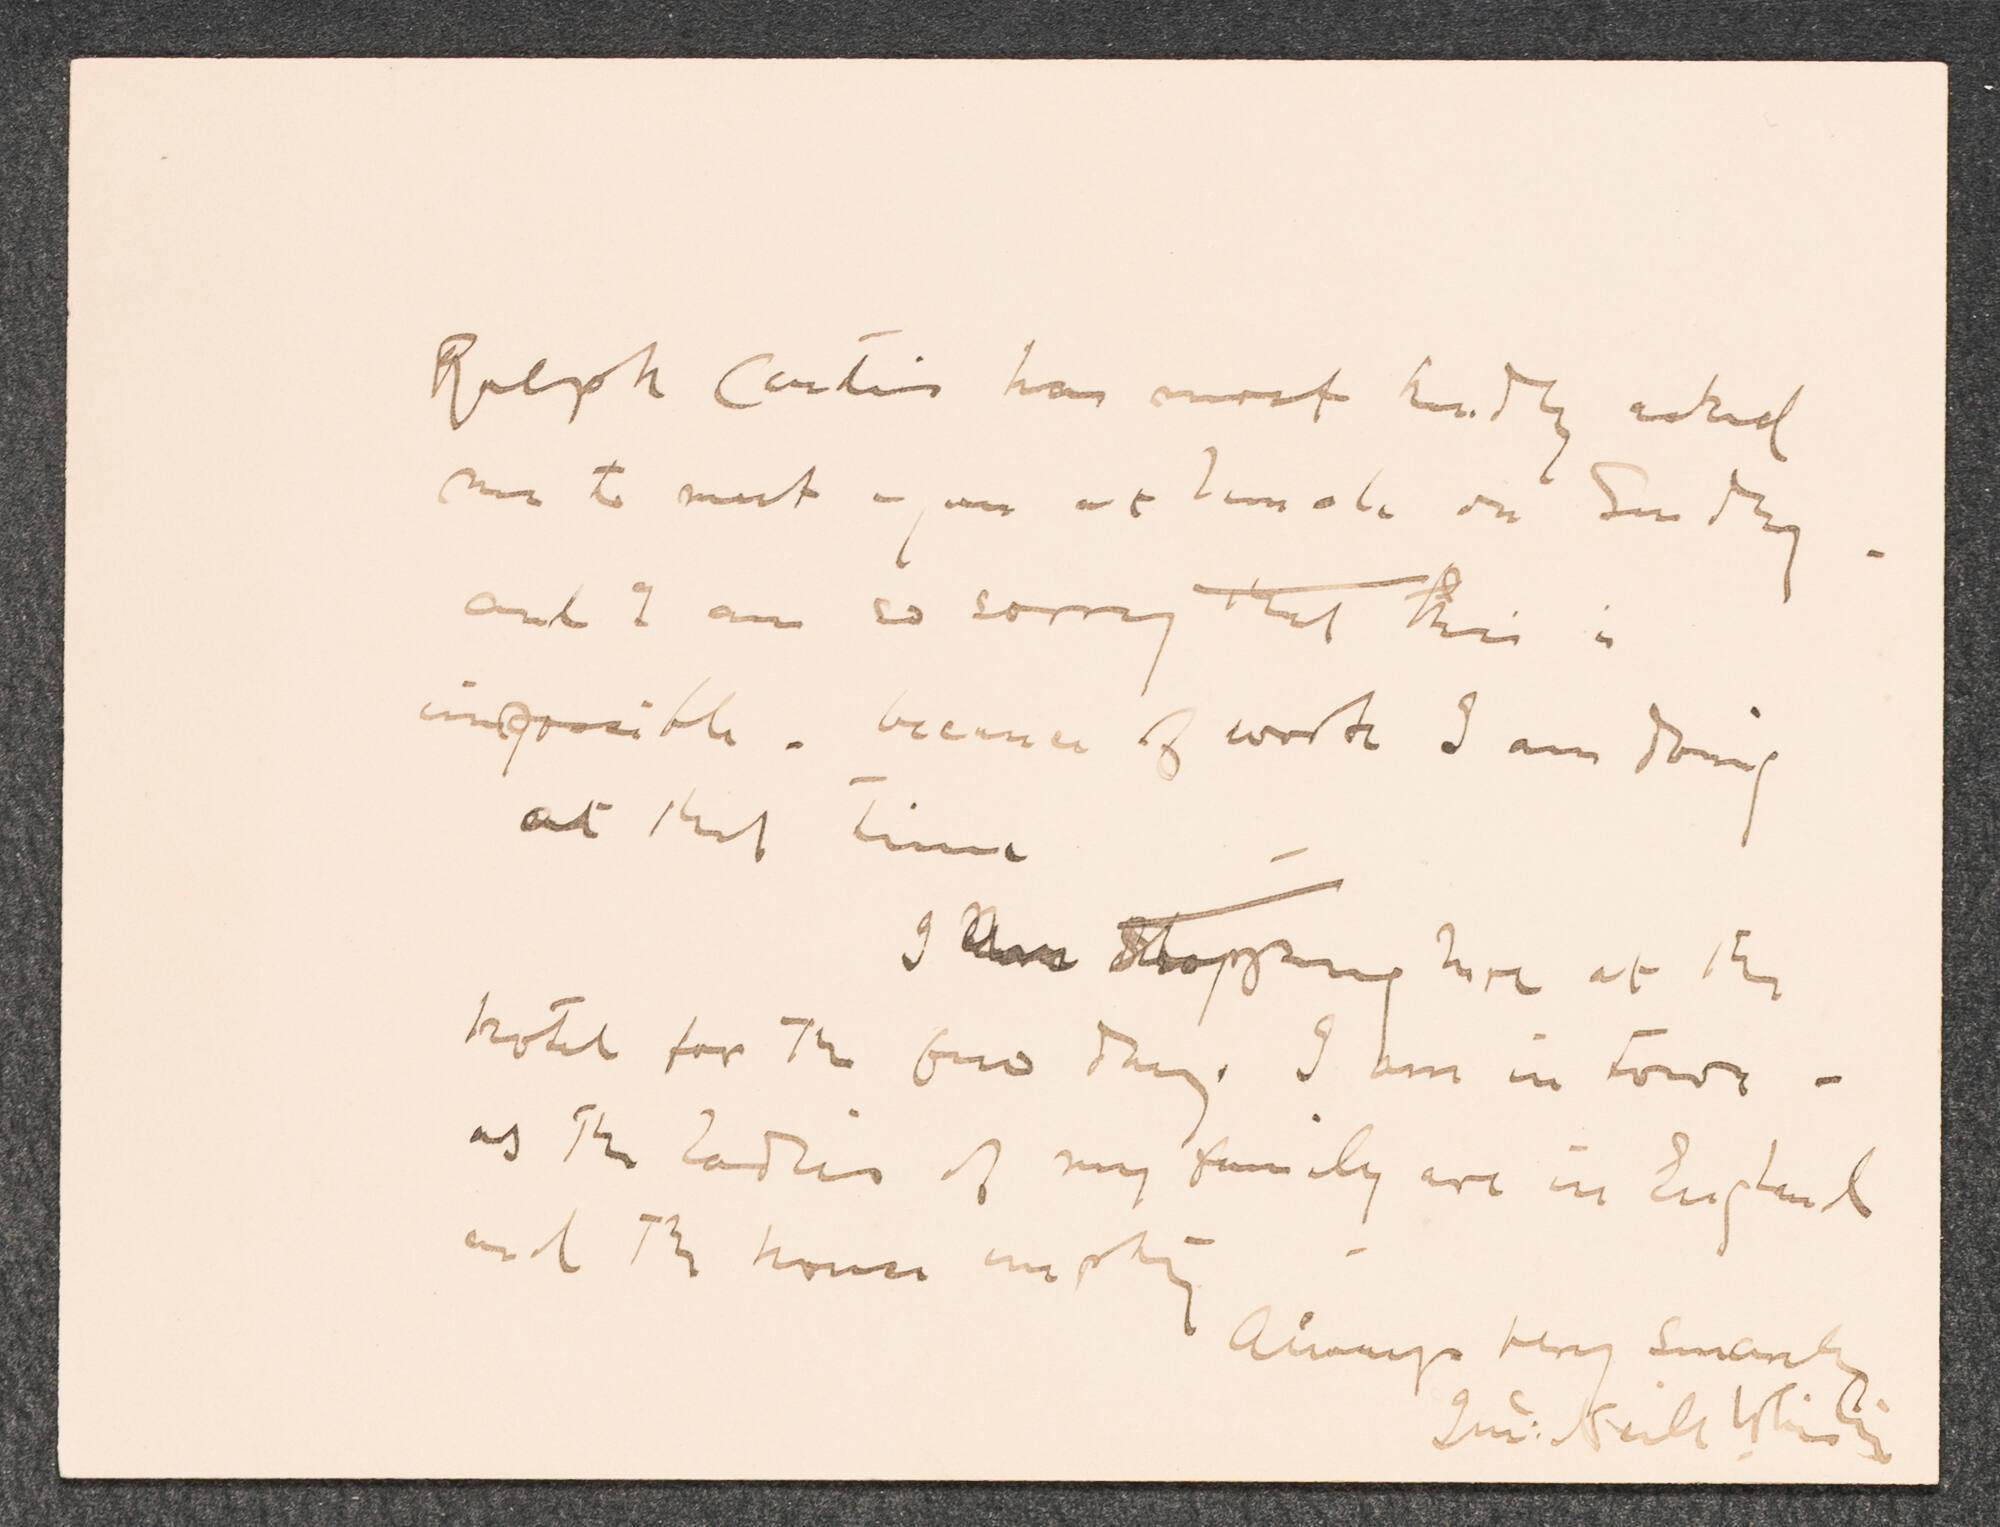 Ralph Curtis has most kindly asked
me to meet you at lunch on Sunday -
and I am so sorry that this is
impossible - because of work I am doing
at that time -
I am stopping here at the
hotel for the few days I am in town -
as the ladies of my family are in England
and the house empty -
Always very sincerely
J. McNeill Whistler